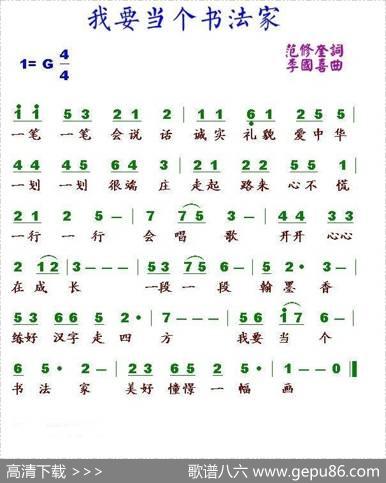 我要当个书法家
1= G 4/4
范修奎詞
李國喜曲
1 1 5 3 2 1 2 | 1 1 6 1 2 2 1
一笔 一笔 会说 话 诚实 礼貌 爱中 华
4 4 4 5 6 4 3 | 2 1 2 2 5 5 1
一划 一划 很端 庄 走起 路来 心不 慌
2 1 2 5 — | 7 7 5 3 — | 4 4 3 3
一行 一 行 会 唱 歌 开开 心心
2 1 2 | 3 — — — | 5 3 7 5 6 | 5 2 · 3 —
在 成 长 一段 一 段 翰 墨 香
5 3 6 6 5 2 | 5 — — — | 5 6 1 7 6
练好 汉字 走 四 方 我要 当 个
6 5 · 2 — | 2 3 6 6 5 2 | 1 — — 0 ‖
书 法 家 美好 憧憬 一 幅 画
高清下载 >>>
歌谱八六 www.gepu86.com